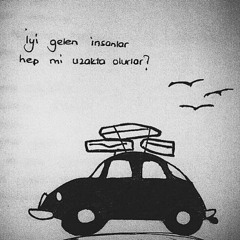 iyi gelen insanlar
hep mi uzakta olurlar?